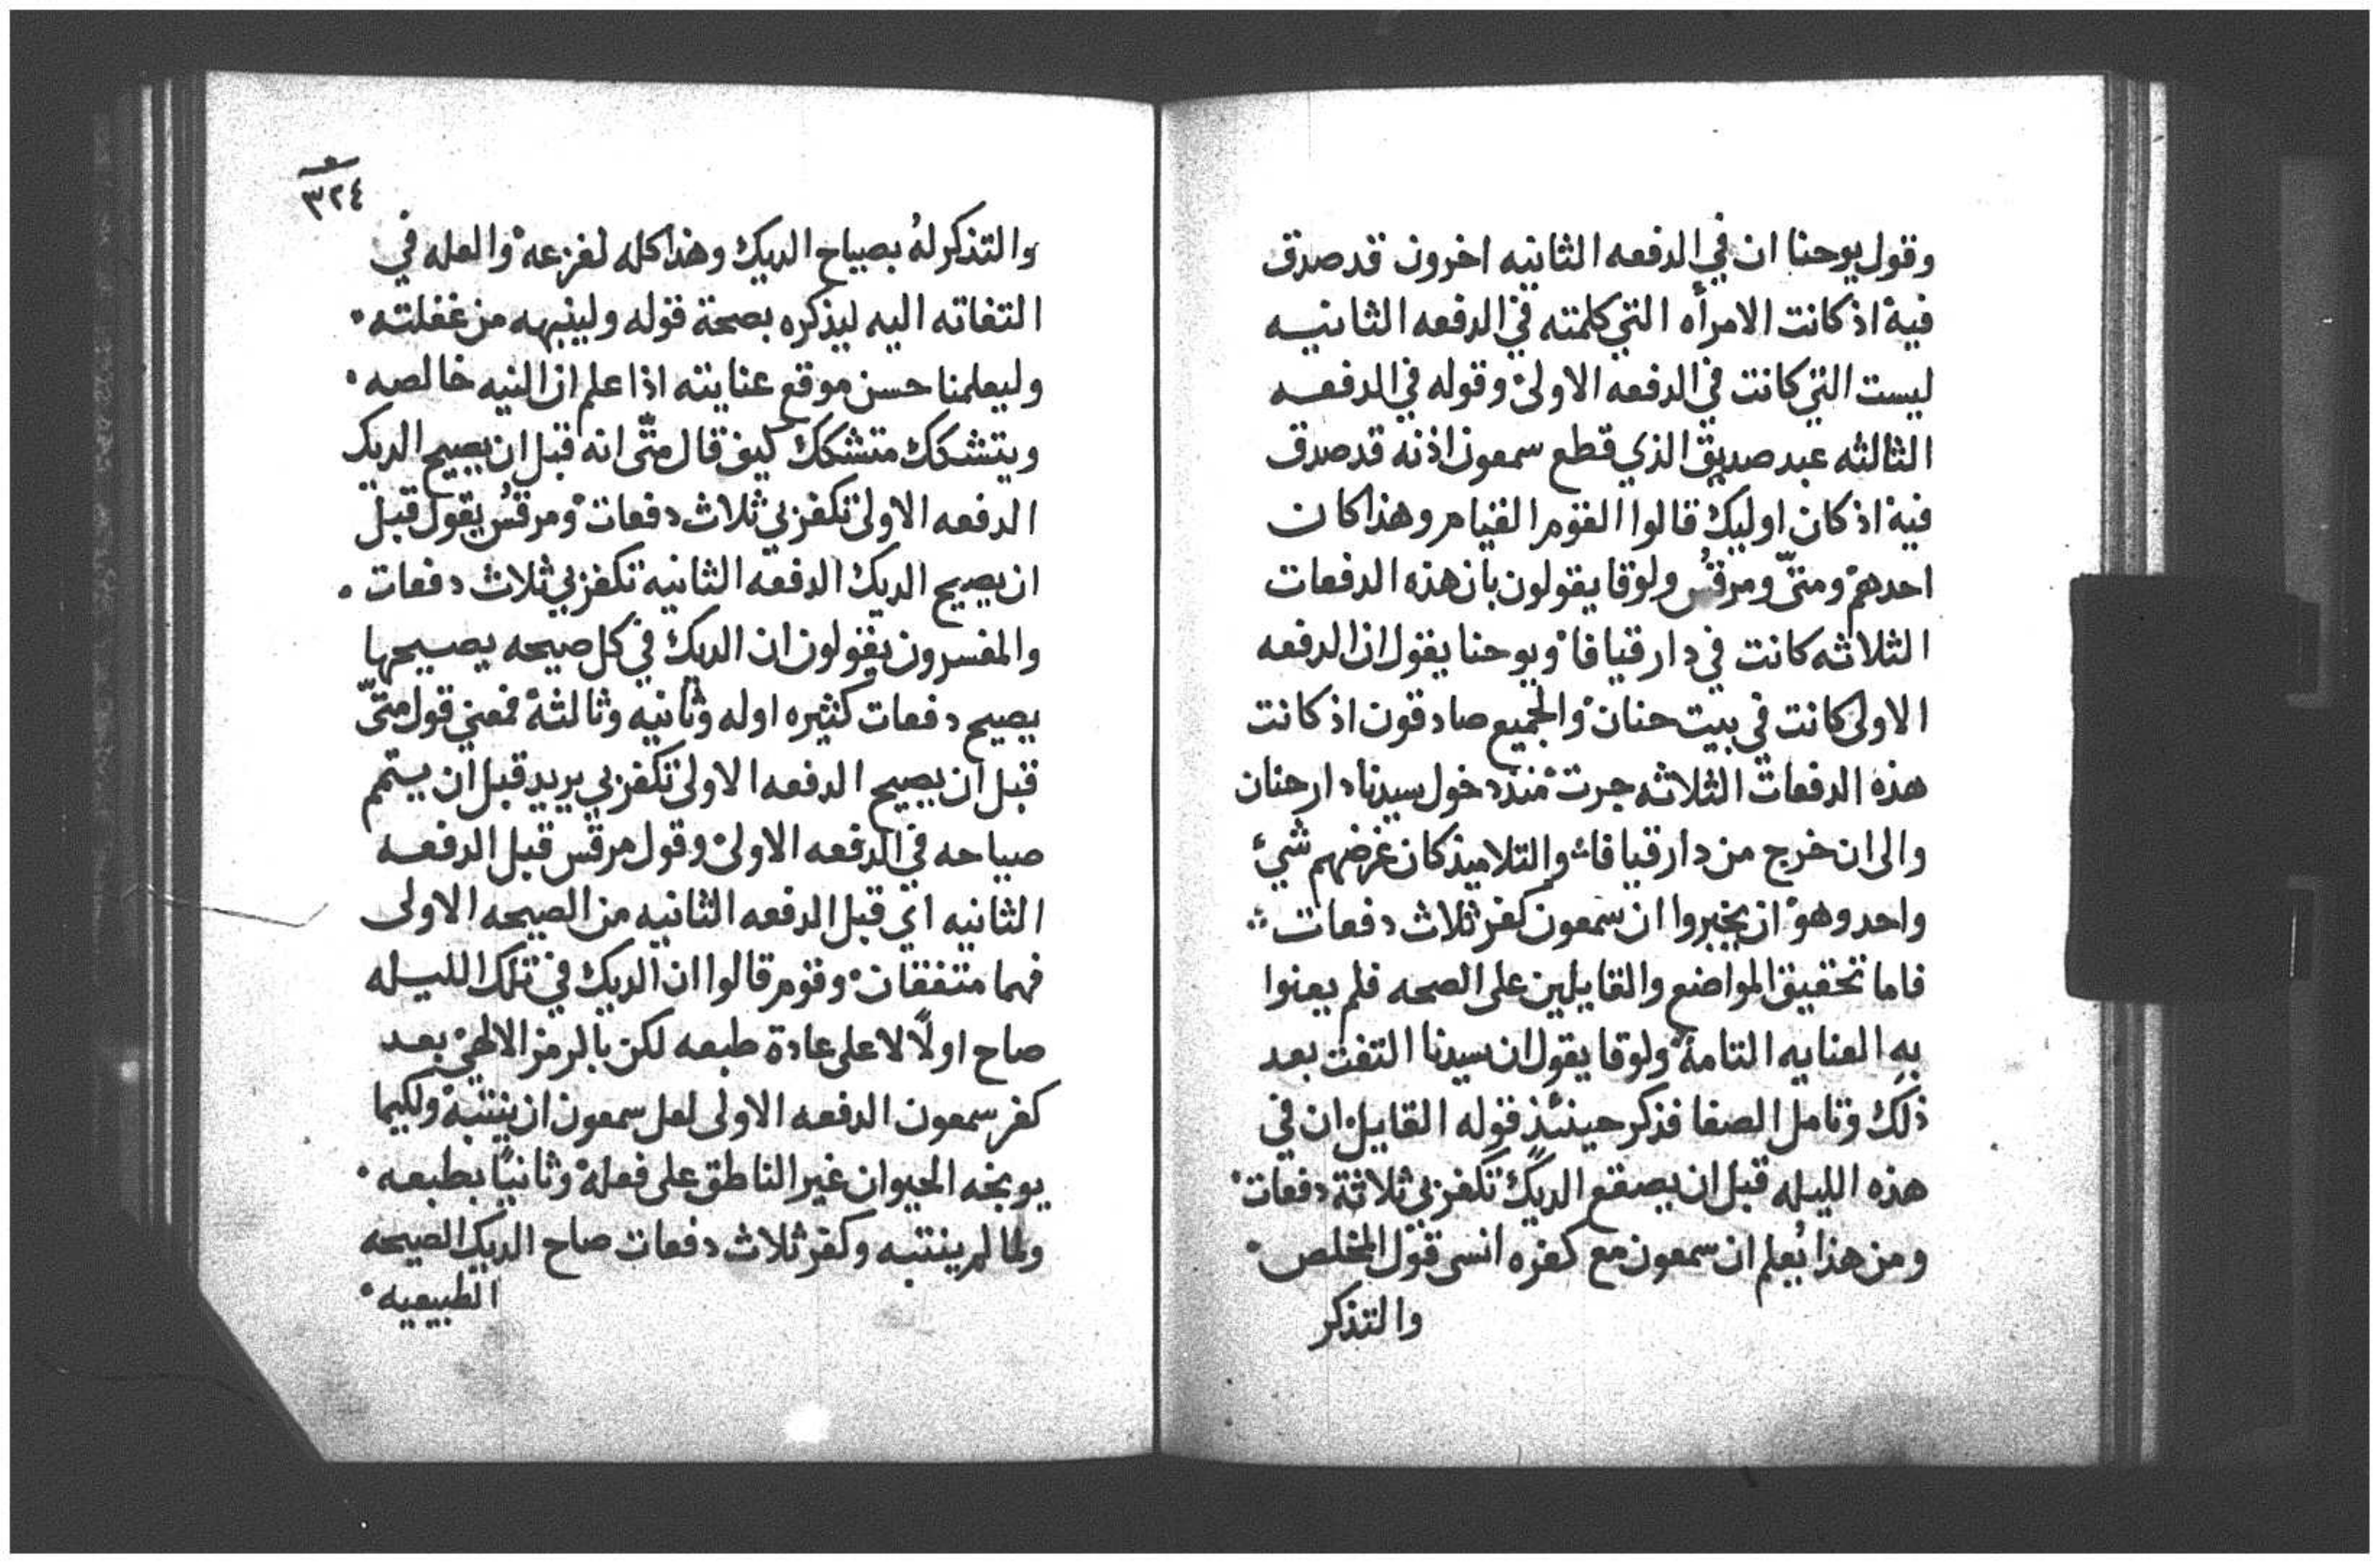 وقول يوحنا ان في الدفعه الثانيه اخرون قد صدق
فيه اذ كانت الامرأه التي كلمته في الدفعه الثانيه
ليست التي كانت في الدفعه الاولى وقوله في الدفعه
الثالثه عبد صديق الذي قطع سمعون اذنه قد صدق
فيه اذ كان اوليك قالوا القوم القيام وهذا كان
احدهم ومتّى ومرقُس ولوقا يقولون بان هذه الدفعات
الثلاثه كانت في دار قيافا ويوحنا يقول ان الدفعه
الاولى كانت في بيت حنان والجميع صادقون اذ كانت
هذه الدفعات الثلاثه جرت منذ دخول سيدنا دار حنان
والى ان خرج من دار قيافا والتلاميذ كان غرضهم شيء
واحد وهو ان يخبروا ان سمعون كفر ثلاث دفعات ∴
فاما تحقيق المواضع والقايلين على الصحه فلم يعنوا
به العنايه التامه ولوقا يقول ان سيدنا التفت بعد
ذلك وتامل الصفا فذكر حينئذ قوله القايل ان في
هذه الليله قبل ان يصقع الديك تكفر بي ثلاثة دفعات
ومن هذا يُعلم ان سمعون مع كفره انسى قول المخلص
والتذكر
٣٢٤
والتذكر لهُ بصياح الديك وهذا كله لفزعه والعله في
التفاته اليه ليذكره بصحة قوله ولينبهه من غفلته
وليعلمنا حسن موقع عنايته اذا علم ان النيه خالصه
ويتشكك متشكك كيف قال متّى انه قبل ان يصيح الديك
الدفعه الاولى تكفر بي ثلاث دفعات ومرقُس يقول قبل
ان يصيح الديك الدفعه الثانيه تكفر بي ثلاث دفعات
والمفسرون يقولون ان الديك في كل صيحه يصيحها
يصيح دفعات كثيره اوله وثانيه وثالثه فمعنى قول متّى
قبل ان يصيح الدفعه الاولى تكفر بي يريد قبل ان يستمم
صياحه في الدفعه الاولى وقول مرقس قبل الدفعه
الثانيه اي قبل الدفعه الثانيه من الصيحه الاولى
فهما متفقان وقوم قالوا ان الديك في تلك الليله
صاح اولًا لا على عادة طبعه لكن بالرمز الالهي بعد
كفر سمعون الدفعه الاولى لعل سمعون ان ينتبه ولكيما
يوبخه الحيوان غير الناطق على فعله وثانيًا بطبعه
ولما لم ينتبه وكفر ثلاث دفعات صاح الديك الصيحه
الطبيعيه